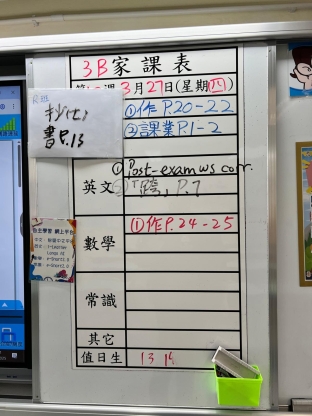 3B家課表
3月27日(星期四)
R班
抄
書P.13
①作P.20-22
②課業P.1-2
英文
①Post-exam ws corr.
P.7
數學
①作P.24-25
常識
其它
值日生
13 14
自主學習 網上平台